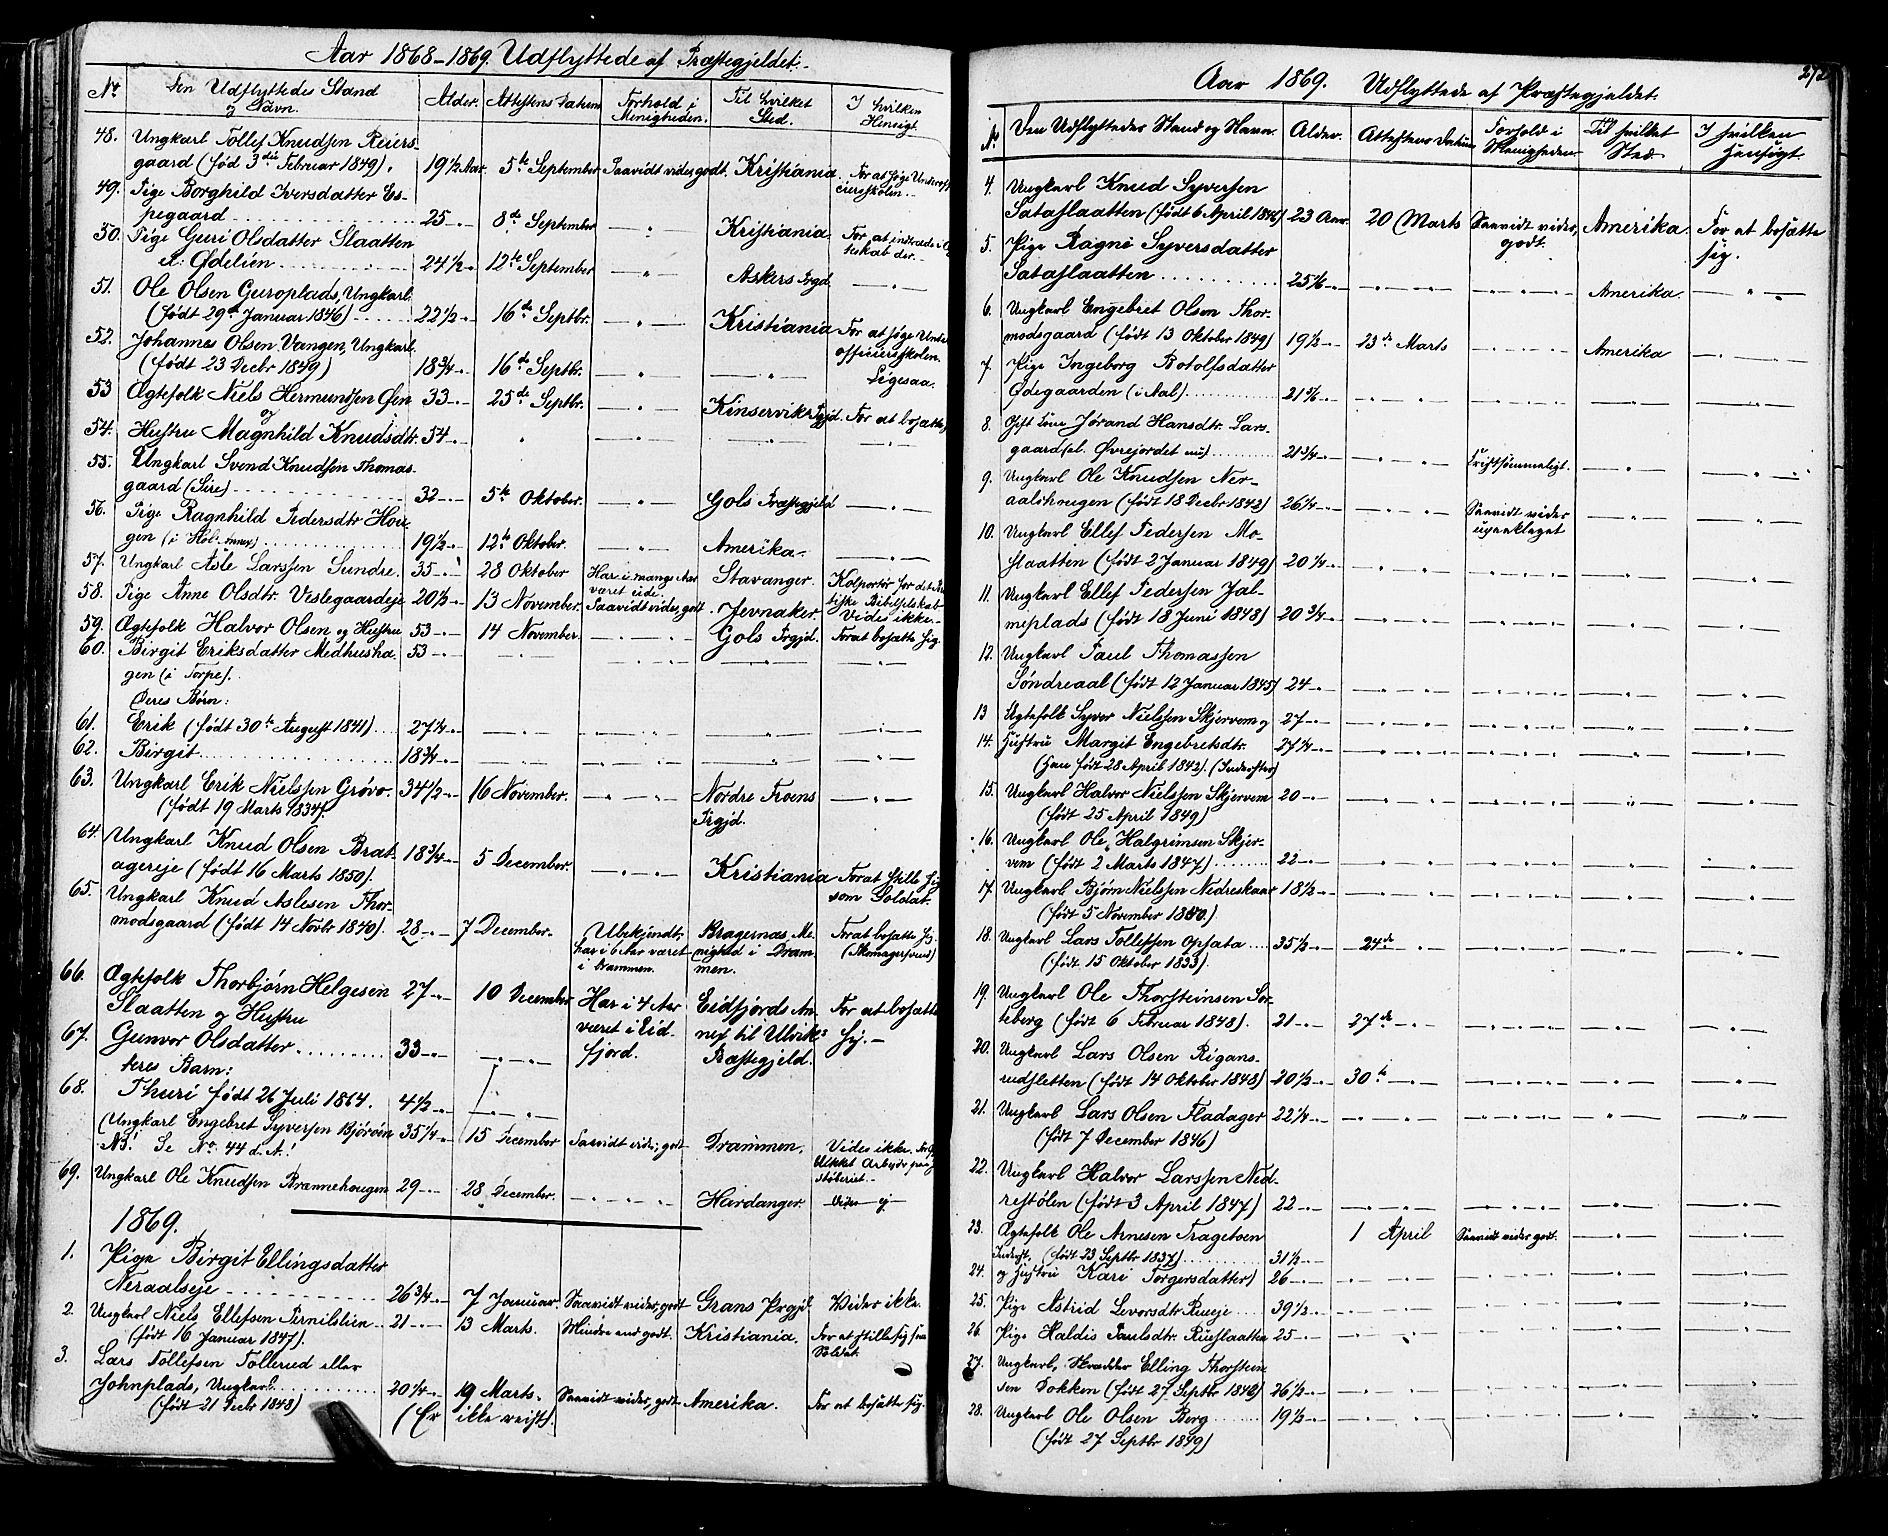 Aar 1868-1869. Udflyttede af Præstegjeldet.
No | Den Udflyttedes Stand og Navn. | Alder. | Attestens Datum | Forhold i Menigheden. | Til hvilket Sted. | I hvilken Hensigt.
48. Ungkarl Tollef Knudsen Reiers-
gaard (født 3die Februar 1849). 19 1/2 Aar. 5te September Saavidt vides godt. Kristiania. For at søge Underoffi-
cierskolen.
49. Pige Borghild Iversdatter Es-
pegaard 25 -"- 8de September -"- Kristiania. For at indtræde i
50. Pige Guri Olsdatter Slaatten
el. Ødelien 24 1/2 -"- 12te September -"- Askers Prgd. -"-
51. Ole Olsen Guroplads, Ungkarl.
(født 29de Januar 1846) 22 1/2 -"- 16de Septbr. -"- Kristiania For at søge Under
officiersskolen.
52. Johannes Olsen Vangen, Ungkarl.
(født 23 Decbr 1849) 18 3/4 -"- 16de Septbr. -"- -"- Ligesaa.
53 Ægtefolk Niels Hermundsen Øen 33 -"- 25de Septbr. -"- Kinservik Prgjd. For at bosætte
og
54. Hustru Magnhild Knudsdtr. 54 -"- " " " -"-
55. Ungkarl Svend Knudsen Thomas-
gaard (Sire) 32 -"- 5te Oktober. -"- Gols Præstegjeld -"-
56. Pige Ragnhild Pedersdtr Hou-
gen (i Hol annex) 19 1/2 -"- 12te Oktober. -"- Amerika. -"-
57. Ungkarl Asle Larssen Sundre. 35 -"- 28 Oktober Har i mange Aar Stavanger. Kolportør for det
været ude.
58. Pige Anne Olsdtr. Veslegaardeje 20 1/2 -"- 13 November. Saavidt vides, godt Jevnaker. Vides ikke.
59. Ægtefolk Halvor Olsen og Hustru 53 -"- 14 November. -"- Gols Prgjd. For at bosætte sig
60. Birgit Eriksdatter Medhusha- 53 -"- -"- -"- -"- -"-
gen (i Torpe).
Deres Børn:
61. Erik (født 30te August 1841) 27 1/4 -"- -"- -"- -"- -"-
62. Birgit 18 3/4 -"- -"- -"- -"- -"-
63. Ungkarl Erik Nielssen Grøvo. 34 1/2 -"- 16 November. -"- Nordre Froens -"-
(født 19 Marts 1834). Prgjd.
64. Ungkarl Knud Olsen Brat-
agereje (født 16 Marts 1850). 18 3/4 -"- 5 December. -"- Kristiania For at stille sig
som Soldat.
65. Ungkarl Knud Aslesen Thor-
modsgaard (født 14 Novbr 1840). 28 -"- 7 December. Ubekjendt, Bragernæs Me- For at bosætte sig.
har i 6 Aar været nighed i Dram-
i Drammen. men.
66. Ægtefolk Thorbjørn Helgesen 27 -"- 10 December Har i 4 Aar Eidfjords An- For at bosætte
Slaatten og Hustru været i Eid- nex til Ulvik sig.
67. Gunvor Olsdatter 33 -"- -"- fjord. Præstegjeld.
deres Barn:
68. Thuri født 26 Juli 1864. 4 1/2 -"- -"-
(Ungkarl Engebret Syversen Bjørøen 35 1/4 -"- 15 December Saavidt vides, godt Drammen. Vides ikke.
NB! Se No. 44 d. A.!
69. Ungkarl Ole Knudsen Brænnehougen 29 -"- 28 December. -"- Hardanger. Vides ej
1869.
1. Pige Birgit Ellingsdatter
Neraalseje 26 3/4 -"- 7 Januar. Saavidt vides, godt Grans Prgjd. Vides ikke.
2. Ungkarl Niels Ellefsen Pernilslien 21 -"- 13 Marts. Mindre end godt. Kristiania. For at stille sig som
(født 16 Januar 1847). Soldat.
3. Lars Tollefsen Tollerud eller
Johnplads, Ungkarl 20 1/4 -"- 19 Marts. Saavidt vides, godt Amerika. For at bosætte sig.
(født 21 Decbr 1848) (Er ikke reist).
272
Aar 1869. Udflyttede af Præstegjeldet.
No | Den Udflyttedes Stand og Navn. | Alder. | Attestens Datum | Forhold i Menigheden. | Til hvilket Sted. | I hvilken Hensigt.
4. Ungkarl Knud Syversen
Sataslaatten (født 6 April 1846) 23 Aar. 20 Marts Saavidt vides, Amerika. For at bosætte
godt. sig.
5. Pige Ragne Syversdatter
Sataslaatten 25 -"- -"- -"- Amerika. -"-
6. Ungkarl Engebret Olsen Thor-
modsgaard (født 13 Oktober 1849) 19 1/2 -"- 23de Marts -"- Amerika -"-
7. Pige Ingeborg Botolfsdatter
Ødegaarden (i Aal) 21 -"- -"- -"- -"- -"-
8. Gift Kone Jørand Hansdtr. Lars-
gaard (el. Øvrejordet nu) 21 3/4 -"- -"- Kristsømmeligt. -"- -"-
9. Ungkarl Ole Knudsen Ner-
aalshougen (født 18 Decbr 1842) 26 1/4 -"- -"- Saavidt vides -"- -"-
upaaklaget
10. Ungkarl Ellef Pedersen Mo-
slaatten (født 2 Januar 1849) 20 1/4 -"- -"- -"- -"- -"-
11. Ungkarl Ellef Pedersen Jal-
meplads (født 18 Juni 1848) 20 3/4 -"- -"- -"- -"- -"-
12. Ungkarl Paul Thomassen
Søndreaal (født 12 Januar 1845) 24 -"- -"- -"- -"- -"-
13 Ægtefolk Syver Nielssen Skjervem og 27 -"- -"- -"- -"- -"-
14. Hustru Margit Engebretsdtr. 27 1/4 -"- -"- -"- -"- -"-
(Han født 28 April 1842). (Inderster)
15. Ungkarl Halvor Nielssen Skjervem 20 -"- -"- -"- -"- -"-
(født 25 April 1849)
16. Ungkarl Ole Halgrimsen Skjer-
vem (født 2 Marts 1847) 22 -"- -"- -"- -"- -"-
17. Ungkarl Bjørn Nielssen Nedreskaar 18 1/2 -"- -"- -"- -"- -"-
(født 5 November 1850.)
18. Ungkarl Lars Tollefssen Opsata 35 1/2 -"- 24de -"- -"- -"- -"-
(født 15 Oktober 1833).
19. Ungkarl Ole Thorsteinsen Sor-
teberg (født 6 Februar 1848). 21 -"- 27de -"- -"- -"- -"-
20. Ungkarl Lars Olsen Rigans-
rudsletten (født 14 Oktober 1848) 20 1/2 -"- 30te -"- -"- -"- -"-
21. Ungkarl Lars Olsen Fladager 22 1/4 -"- -"- -"- -"- -"-
(født 7 December 1846)
22. Ungkarl Halvor Larssen Ned-
restølen (født 3 April 1847) 22 -"- -"- -"- -"- -"-
23. Ægtefolk Ole Arnesen Tragetoen 1 April Saavidt vides godt. -"- -"-
Inderst, (født 23 Septbr 1837) 31 1/2 -"-
24. og Hustru Kari Torgersdatter) 26 -"- -"- -"- -"- -"-
25. Pige Astrid Levorsdtr Rueeje 39 1/2 -"- -"- -"- -"- -"-
26. Pige Haldis Paulsdtr. Rueslaatten 25 -"- -"- -"- -"- -"-
27. Ungkarl, Skrædder Elling Thorstein-
sen Dokken (født 27 Septbr 1842) 26 1/2 -"- -"- -"- -"- -"-
28. Ungkarl Ole Olsen Berg 19 1/2 -"- -"- -"- -"- -"-
(født 27 Septbr 1849)